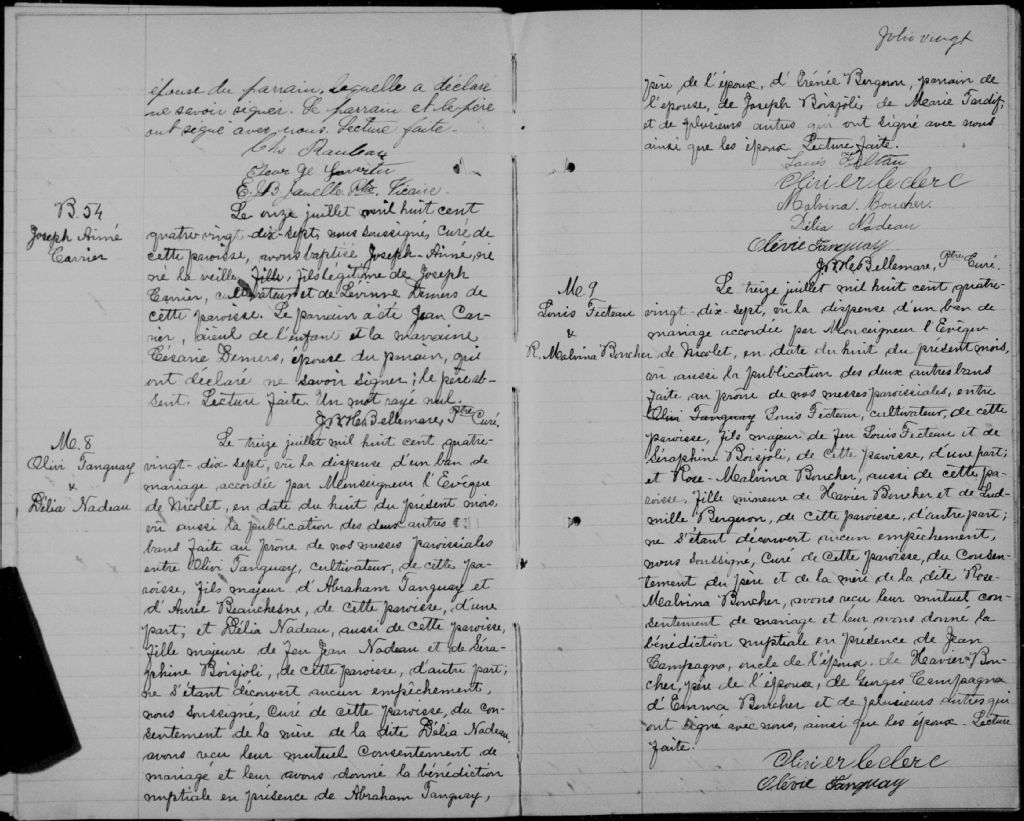 épouse du parrain, laquelle a déclaré
ne savoir signer. Le parrain et le père
ont signé avec nous. Lecture faite.
George
Vicaire.
B. 54
Joseph Aimé
Carrier
Le onze juillet mil huit cent
quatre-vingt-dix-sept, nous soussigné, Curé de
cette paroisse, avons baptisé Joseph-Aimé, né
né la veille, fille, fils légitime de Joseph
Carrier, cultivateur et de Lévinne Demers de
cette paroisse. Le parrain a été Jean Car-
rier, aieul de l'enfant et la marraine
Césarie Demers, épouse du parrain, qui
ont déclaré ne savoir signer; le père ab-
sent. Lecture faite. Un mot rayé nul.
Bellemare, Ptre Curé.
M. 8
Olivi Tanguay
&
Délia Nadeau
Le treize juillet mil huit cent quatre-
vingt-dix-sept, vu la dispense d'un ban de
mariage accordée par Monseigneur l'Evêque
de Nicolet, en date du huit du présent mois,
vu aussi la publication des deux autres
bans faite au prône de nos messes paroissiales
entre Olivi Tanguay, cultivateur, de cette pa-
roisse, fils majeur d'Abraham Tanguay et
d'Aurée Beauchesne, de cette paroisse, d'une
part; et Délia Nadeau, aussi de cette paroisse,
fille majeure de feu Jean Nadeau et de Séra-
phine Boisjoli, de cette paroisse, d'autre part;
ne s'étant découvert aucun empêchement,
nous soussigné, Curé de cette paroisse, du con-
sentement de la mère de la dite Délia Nadeau,
avons reçu leur mutuel consentement de
mariage et leur avons donné la bénédiction
nuptiale en présence de Abraham Tanguay,
folio vingt
père de l'époux, d'Irénée Bergeron, parrain de
l'épouse, de Joseph Boisjoli, de Marie Tardif,
et de plusieurs autres qui ont signé avec nous
ainsi que les époux. Lecture faite.
Louis
Olivier leclerc
Malvina Boucher.
Délia Nadeau
Olévie Tanguay
Bellemare, Ptre Curé.
M. 9
Louis Fecteau
&
R. Malvina Boucher
Le treize juillet mil huit cent quatre-
vingt-dix-sept, vu la dispense d'un ban de
mariage accordée par Monseigneur l'Evêque
de Nicolet, en date du huit du présent mois,
vu aussi la publication des deux autres bans
faite au prône de nos messes paroissiales, entre
Olivi Tanguay Louis Fecteau, cultivateur, de cette
paroisse, fils majeur de feu Louis Fecteau et de
Séraphine Boisjoli, de cette paroisse, d'une part;
et Rose-Malvina Boucher, aussi de cette pa-
roisse, fille mineure de Xavier Boucher et de Lud-
mille Bergeron, de cette paroisse, d'autre part;
ne s'étant découvert aucun empêchement,
nous soussigné, Curé de cette paroisse, du consen-
tement du père et de la mère de la dite Rose-
Malvina Boucher, avons reçu leur mutuel con-
sentement de mariage et leur avons donné la
bénédiction nuptiale en présence de Jean
Campagna, oncle de l'époux, de Xavier Bou-
cher, père de l'épouse, de Georges Campagna
d'Emma Boucher et de plusieurs autres qui
ont signé avec nous, ainsi que les époux. Lecture
faite.
Olivier leclerc
Olévie Tanguay